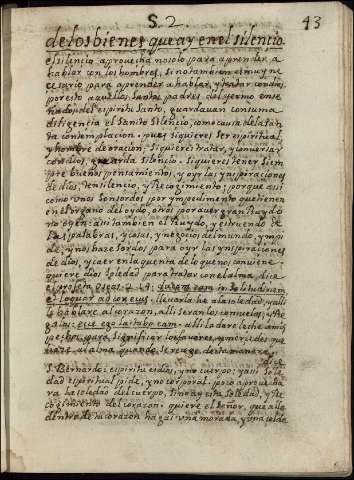 S. 2.
43
de los bienes que ay en el silencio.
el silencio aprouecha no solo para aprender a
hablar con los hombres, sino tambien es muy ne
cesario para aprender a hablar, y tratar con dios,
por esto aquellos santos padres del yermo ense
ñados del espiritu santo, guardauan con suma
diligencia el santo silencio, como causa de la san
ta contemplacion. pues si quieres ser espiritual,
y hombre de oracion; si quieres tratar, y conuersar
con dios, guarda silencio. si quieres tener siem
pre buenos pensamientos, y oyr las ynspiraciones
de dios, ten silencio, y recogimiento; porque assi
como vnos son sordos por ympedimento que tienen
en el organo del oydo, otros por auer gran ruydo
no oyen: assi tambien el ruydo, y estruendo de
las palabras, y cosas, y negocios del mundo, ympi
de, y nos haze sordos para oyr las ynspiraciones
de dios, y caer en la quenta de lo que nos conuiene.
quiere dios soledad para tratar con el alma, dice
el profeta Oseas. 2. 14. ducam eam in solitudinem
et loquar ad cor eius. lleuarla he a la soledad, y alli
le hablare al corazon, alli seran los consuelos, y re
galos; ecce ego lactabo eam. alli la dare leche a mis
pechos, para significar los fauores, y mercedes que
hare al alma quando se recoge desta manera.
S. Bernardo: espiritu es dios, y no cuerpo; y assi sole
dad espiritual pide, y no corporal. poco aprouecha
ra la soledad del cuerpo, sino ay esta soledad, y re
cogimiento del corazon. quiere el señor, que alla
dentro de tu corazon hagas vna morada, y vna celda